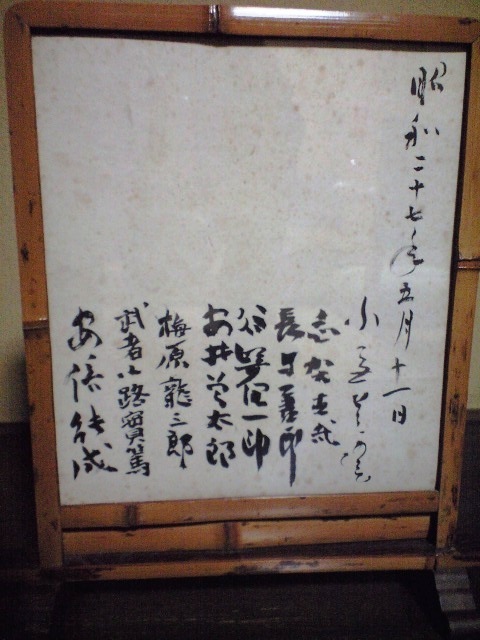 昭和二十七年五月十一日
小
志賀直哉
長与善郎
谷崎潤一郎
安井曽太郎
梅原龍三郎
武者小路實篤
安倍能成